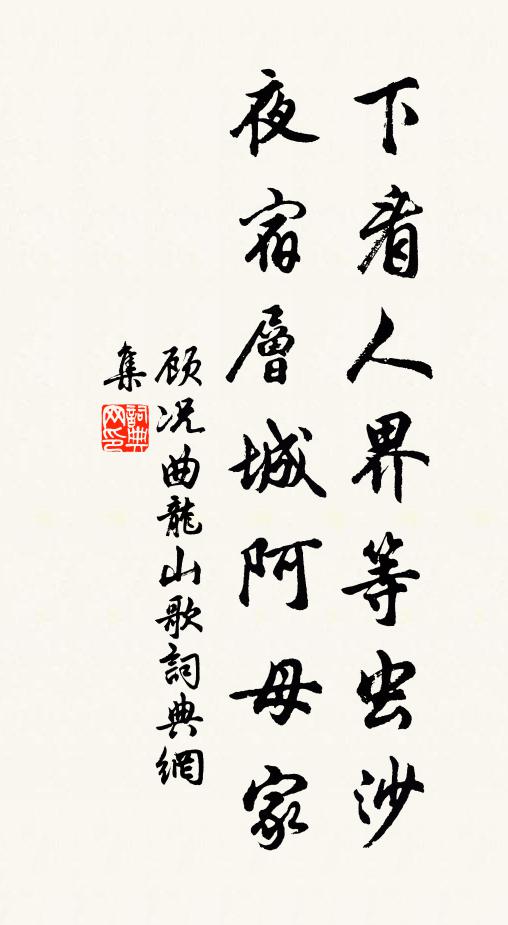 下看人界等虫沙
夜宿層城阿母家
顾况曲龍山歌詞典網
集
詞典网印